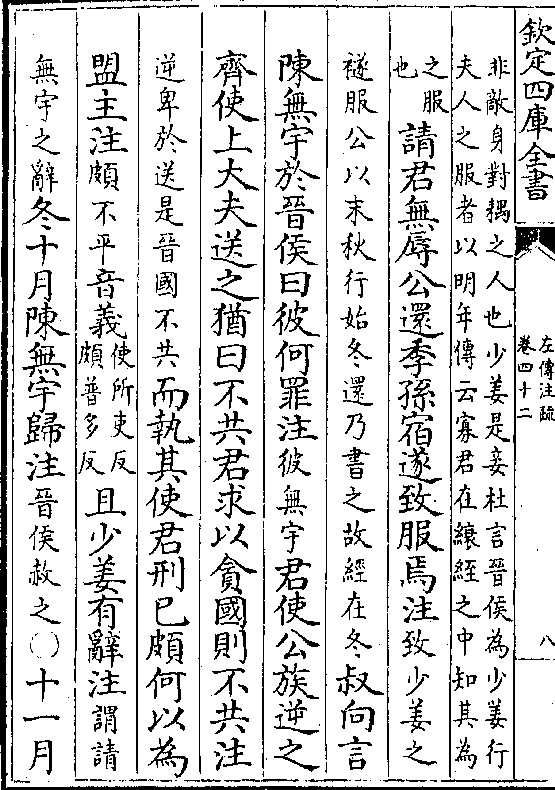 欽定四庫全書
左傳注疏
卷四十二
八
非敵身對耦之人也少姜是妾杜言晉侯為少姜行
夫人之服者以明年傳云寡君在縗絰之中知其為
之服
也
請君無辱公還季孫宿遂致服焉注致少姜之
襚服公以末秋行始冬還乃書之故經在冬叔向言
陳無宇於晉侯曰彼何罪注彼無宇君使公族逆之
齊使上大夫送之猶曰不共君求以貪國則不共注
逆卑於送是晉國不共而執其使君刑已頗何以為
盟主注頗不平音義使所吏反
頗普多反
且少姜有辭注謂請
無宇之辭冬十月陳無宇歸注晉侯赦之○十一月